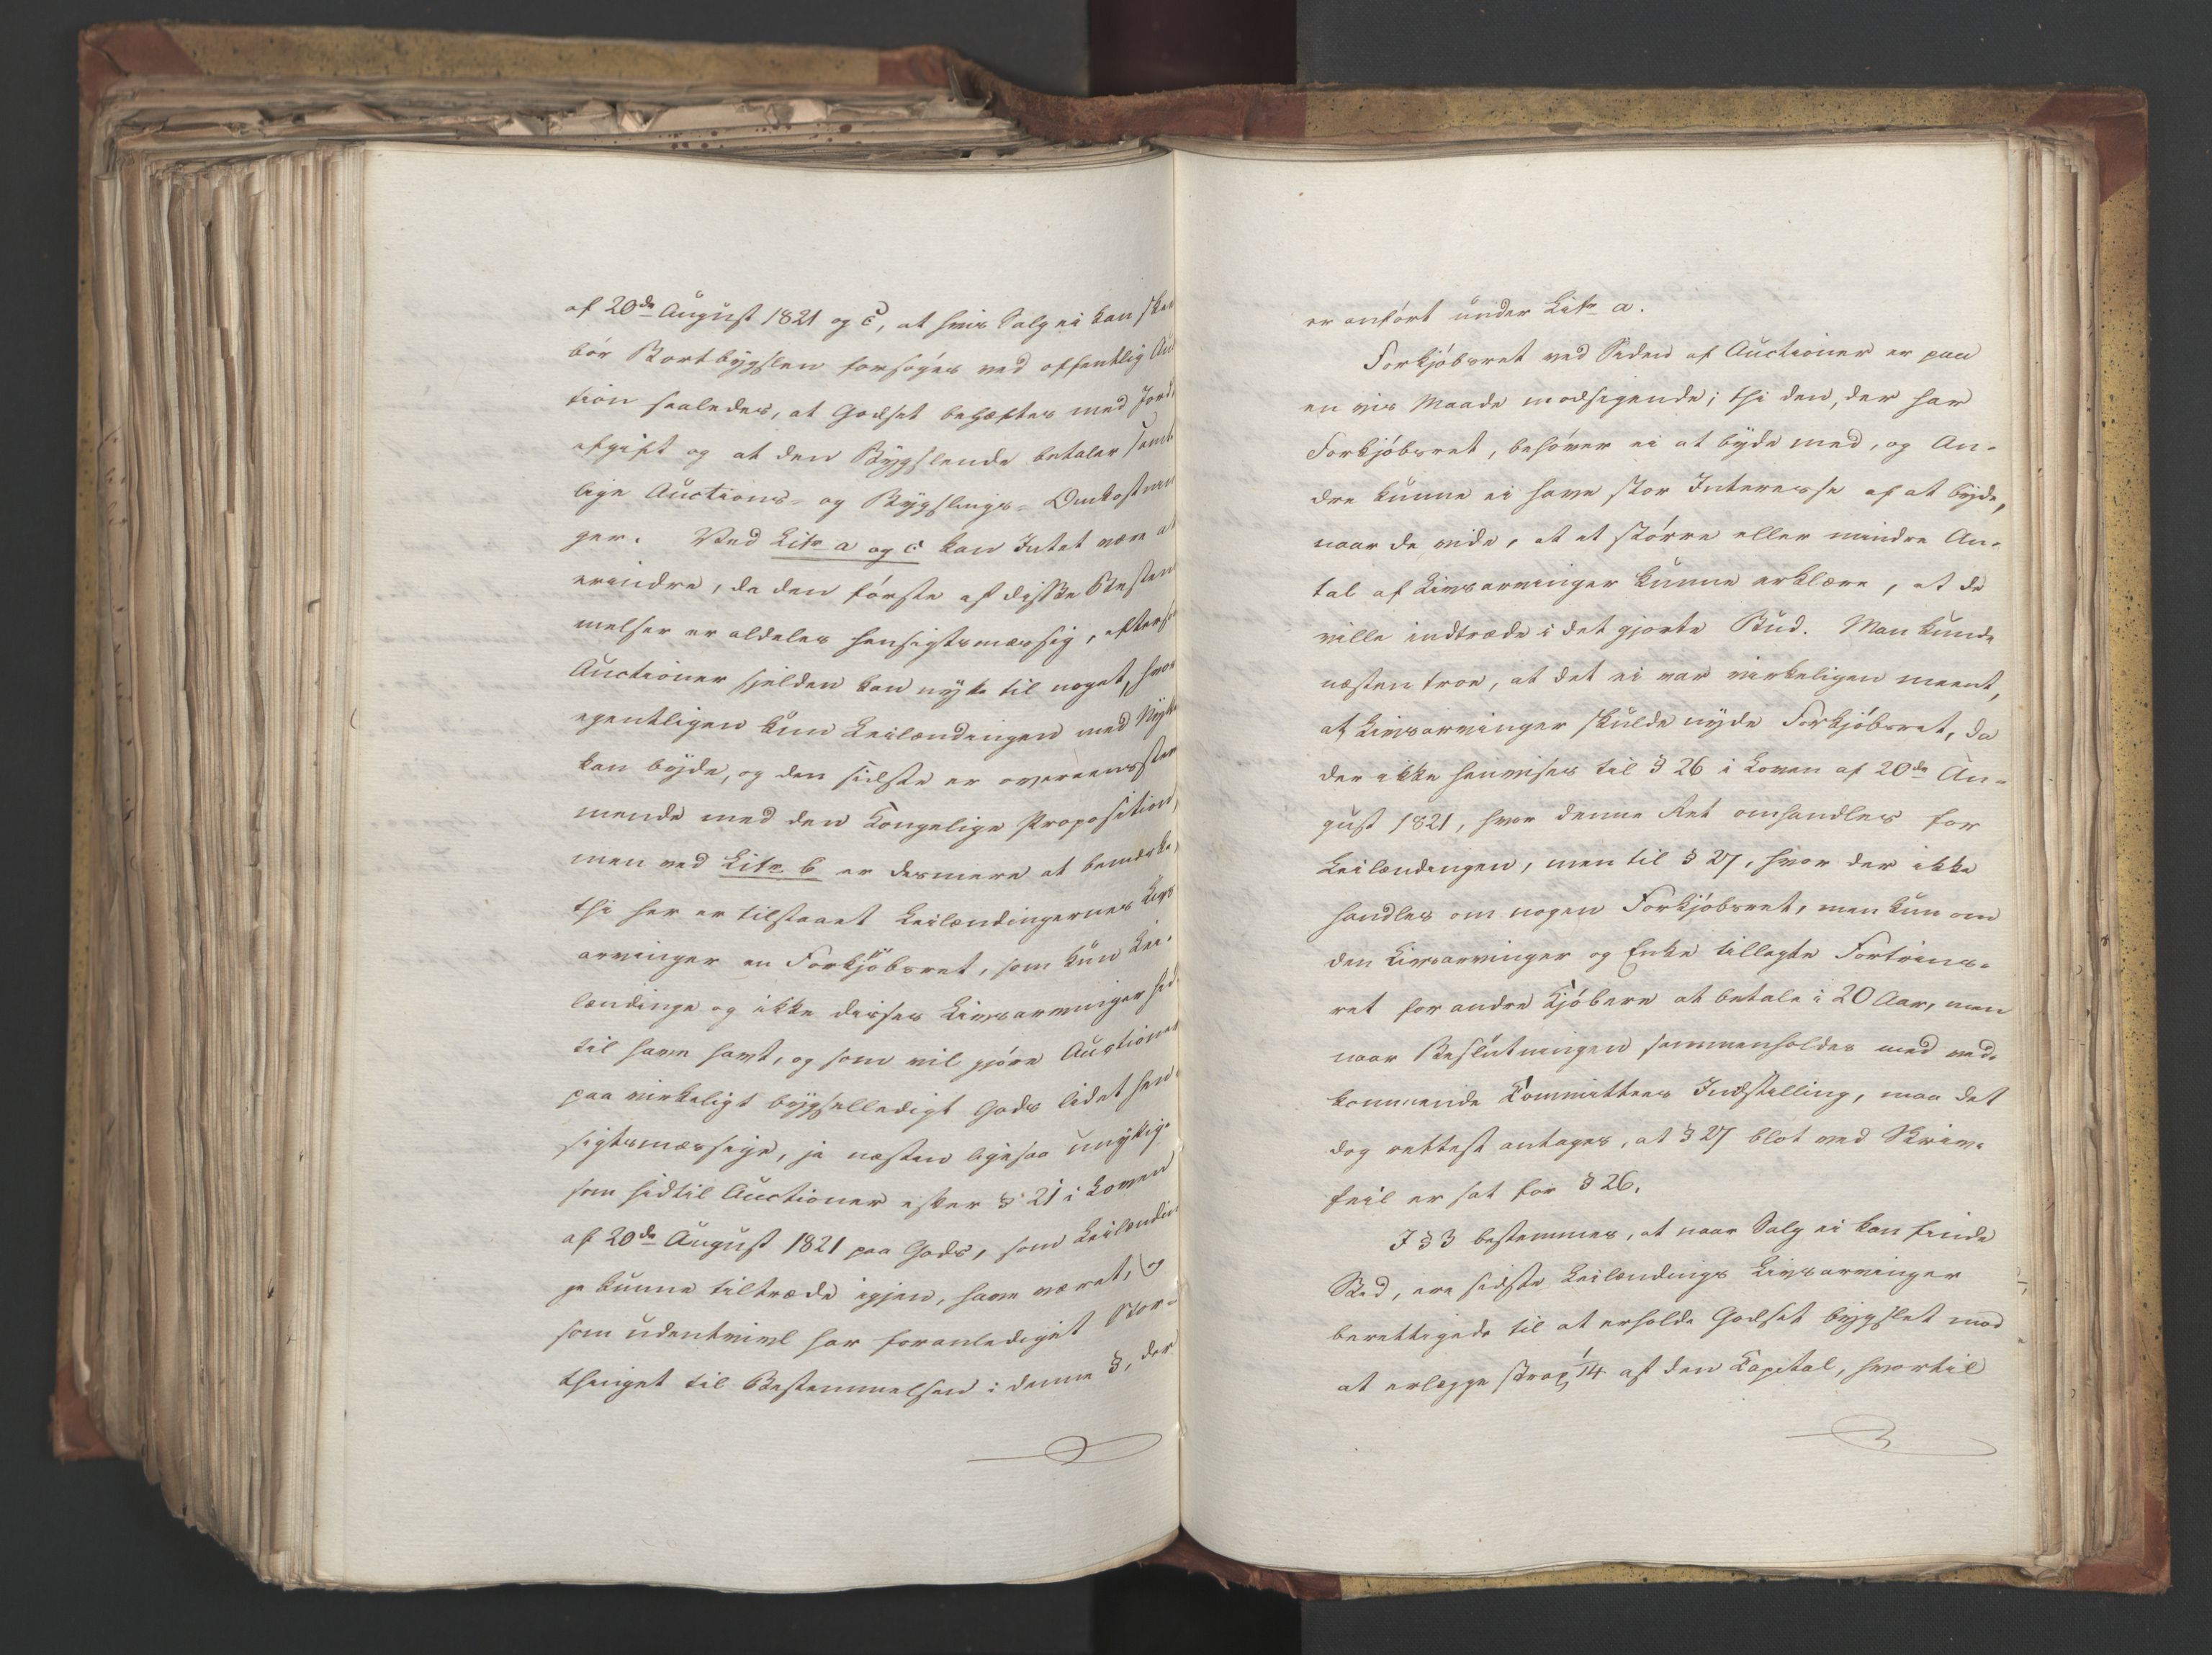 af 20de August 1821 og c, at hvis Salg ei kan skee
bör Bortbygslen forsöges ved offentlig Auc
tion saaledes, at Godset behæftes med Jord
afgift og at den Bygslende betaler samt
lige Auctions- og Bygslings- Omkostnin
ger. Ved Litr a og c kan Intet være at
erindre, da den förste af disse Bestem
melser er aldeles hensigtsmæssig, efterso
Auctioner sjelden kan nytte til noget, hvor
egentligen kun Leilændingen med Nytte
kan byde, og den sidste er overeensstem
mende med den Kongelige Proposition,
men ved Litr. b er desmere at bemærke,
thi her er tilstaaet Leilændingernes Livs
arvinger en Forkjöbsret, som kun Lei-
lændinge og ikke disses Livsarvinger hid
til have havt, og som vil gjöre Auctioner
paa virkeligt bygselledigt Gods lidet hen-
sigtsmæssige, ja næsten ligesaa unyttige
som hidtil Auctioner efter § 21 i Loven
af 20de August 1821 paa Gods, som Leilændin
ge kunne tiltræde igjen, have været, og
som udentvivl har foranlediget Stor-
thinget til Bestemmelsen i denne §, der
er anfört under Litr a.
Forkjöbsret ved Siden af Auctioner er paa
en vis Maade modsigende; thi den, der har
Forkjöbsret, behöver ei at byde med, og An-
dre kunne ei have stor Interesse af at byde,
naar de vide, at et större eller mindre An-
tal af Livsarvinger kunne erklære, at de
ville indtræde i det gjorte Bud. Man kunde
næsten troe, at det ei var virkeligen meent,
at Livsarvinger skulde nyde Forkjöbsret, da
der ikke henvises til § 26 i Loven af 20de Au-
gust 1821, hvor denne Ret omhandles for
Leilændingen, men til § 27, hvor der ikke
handles om nogen Forkjöbsret, men kun om
den Livsarvinger og Enke tillagte Fortrins-
ret for andre Kjöbere at betale i 20 Aar, men
naar Beslutningen sammenholdes med ved-
kommende Committees Indstilling, maa det
dog rettest antages, at § 27 blot ved Skriv-
feil er sat for § 26.
I § 3 bestemmes, at naar Salg ei kan finde
Sted, ere sidste Leilændings Livsarvinger
berettigede til at erholde Godset bygslet mod
at erlægge strax 1/14 af den Kapital, hvortil